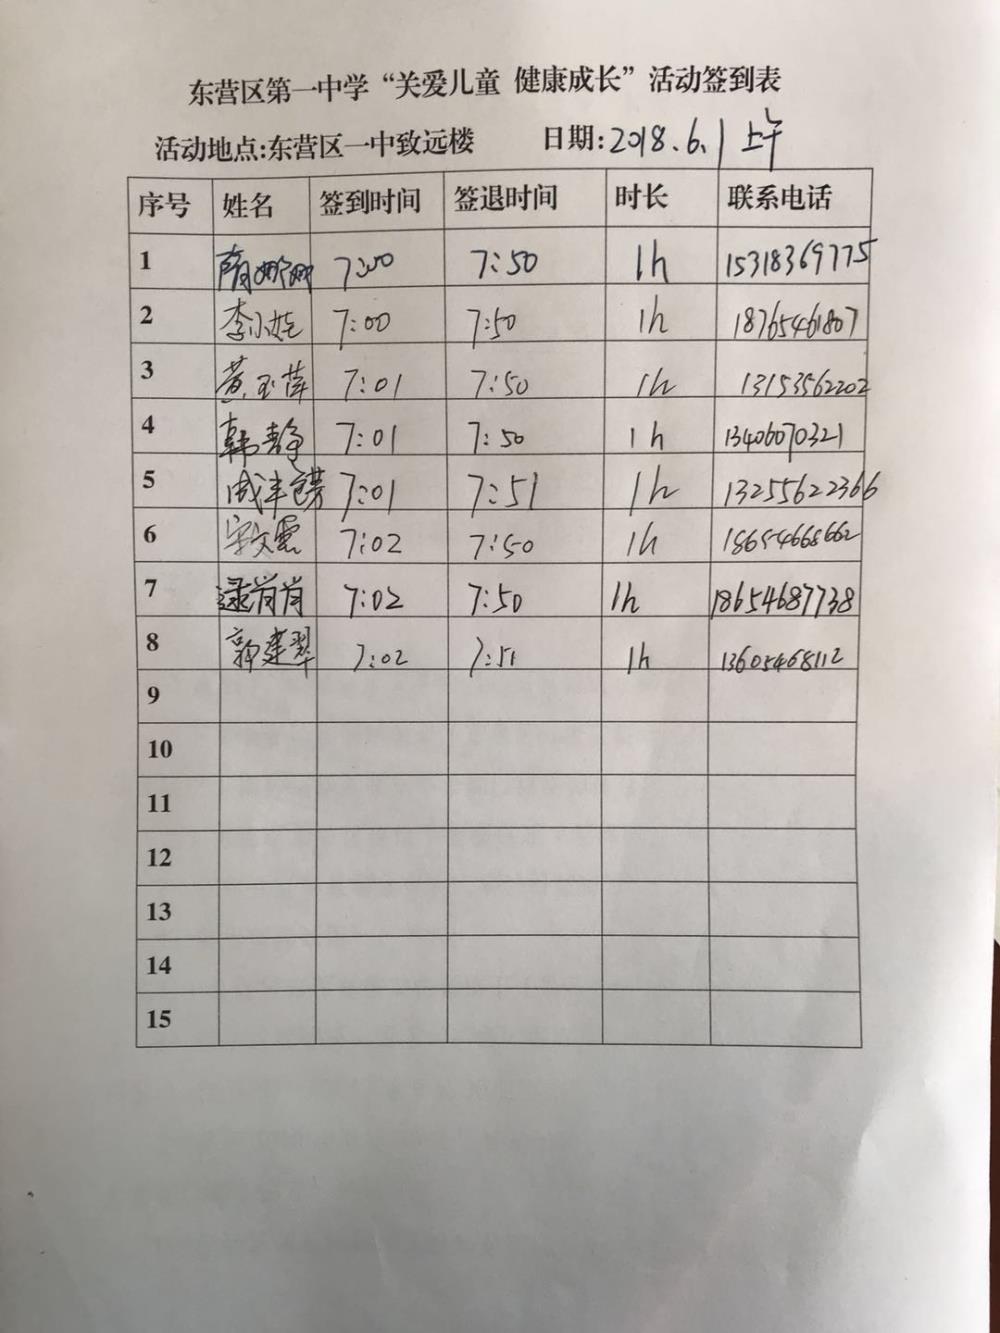 东营区第一中学“关爱儿童 健康成长”活动签到表
活动地点:东营区一中致远楼 日期:2018.6.1 上午
序号 姓名 签到时间 签退时间 时长 联系电话
1 隋娜娜 7:00 7:50 1h 15318369775
2 李小娃 7:00 7:50 1h 18765461807
3 黄玉萍 7:01 7:50 1h 13153562202
4 韩静 7:01 7:50 1h 13406070321
5 7:01 7:51 1h 13255622366
6 宋文霞 7:02 7:50 1h 18654668662
7 逯肖肖 7:02 7:50 1h 18654687738
8 郭建翠 7:02 7:51 1h 13605468112
9
10
11
12
13
14
15